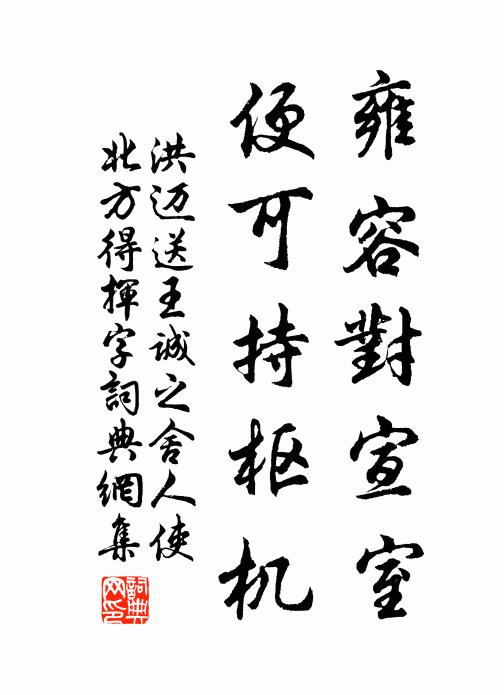 雍容對宣室
便可持枢机
洪迈送王诚之舍人使
北方得揮字詞典網集
詞典
网印